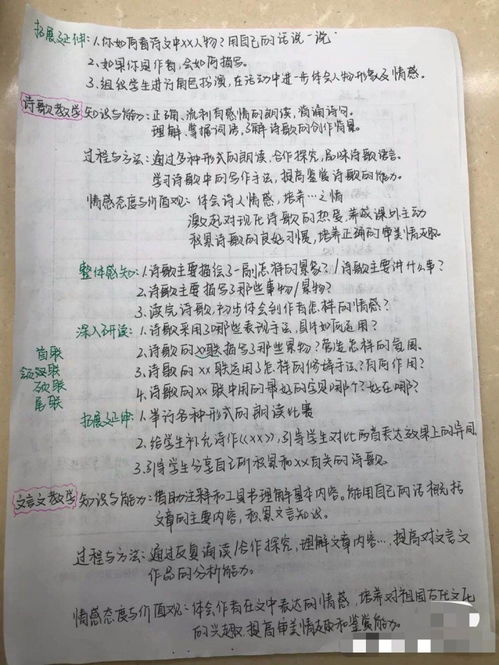 拓展延伸：1.你如何看诗文中xx人物？用自己的话说一说
2.如果你是作者，会如何描写。
3.组织学生进行角色扮演，在活动中进一步体会人物形象及情感。
诗歌教学 知识与能力：正确、流利有感情的朗读，背诵诗句。
理解、掌握词语，了解诗歌的创作背景。
过程与方法：通过多种形式的朗读，合作探究，品味诗歌语言。
学习诗歌中的写作手法，提高鉴赏诗歌的能力。
情感态度与价值观：体会诗人情感，培养…之情
激起对现代诗歌的热爱 养成课外主动
积累诗歌的良好习惯，培养正确的审美情趣。
整体感知：1.诗歌主要描绘了一副怎样的景象？/诗歌主要讲什么事？
2.诗歌主要描写了那些事物/景物？
3.读完诗歌，初步体会到作者怎样的情感？
深入研读：1.诗歌采用了哪些表现手法，具体如何运用？
首联
2.诗歌的xx联描写了那些景物？营造怎样的氛围。
颔联
3.诗歌的xx联运用了怎样的修辞手法？有何作用？
颈联
4.诗歌的xx联中用的最好的字是哪个？好在哪？
尾联
拓展延伸 1.举行各种形式的朗读比赛
2.给学生补充诗作《xx》，引导学生对比两首表达效果上的异同
3.引导学生分享自己所积累和xx有关的诗歌。
文言文教学 知识与能力：借助注释和工具书理解基本内容。能用自己的话概括
文章的主要内容，积累文言知识。
过程与方法：通过反复诵读/合作探究，理解文章内容…，提高对文言文
作品的分析能力。
情感态度与价值观：体会作者在文中表达的情感，培养对祖国古代文化
的兴趣 提高审美情趣和鉴赏能力。